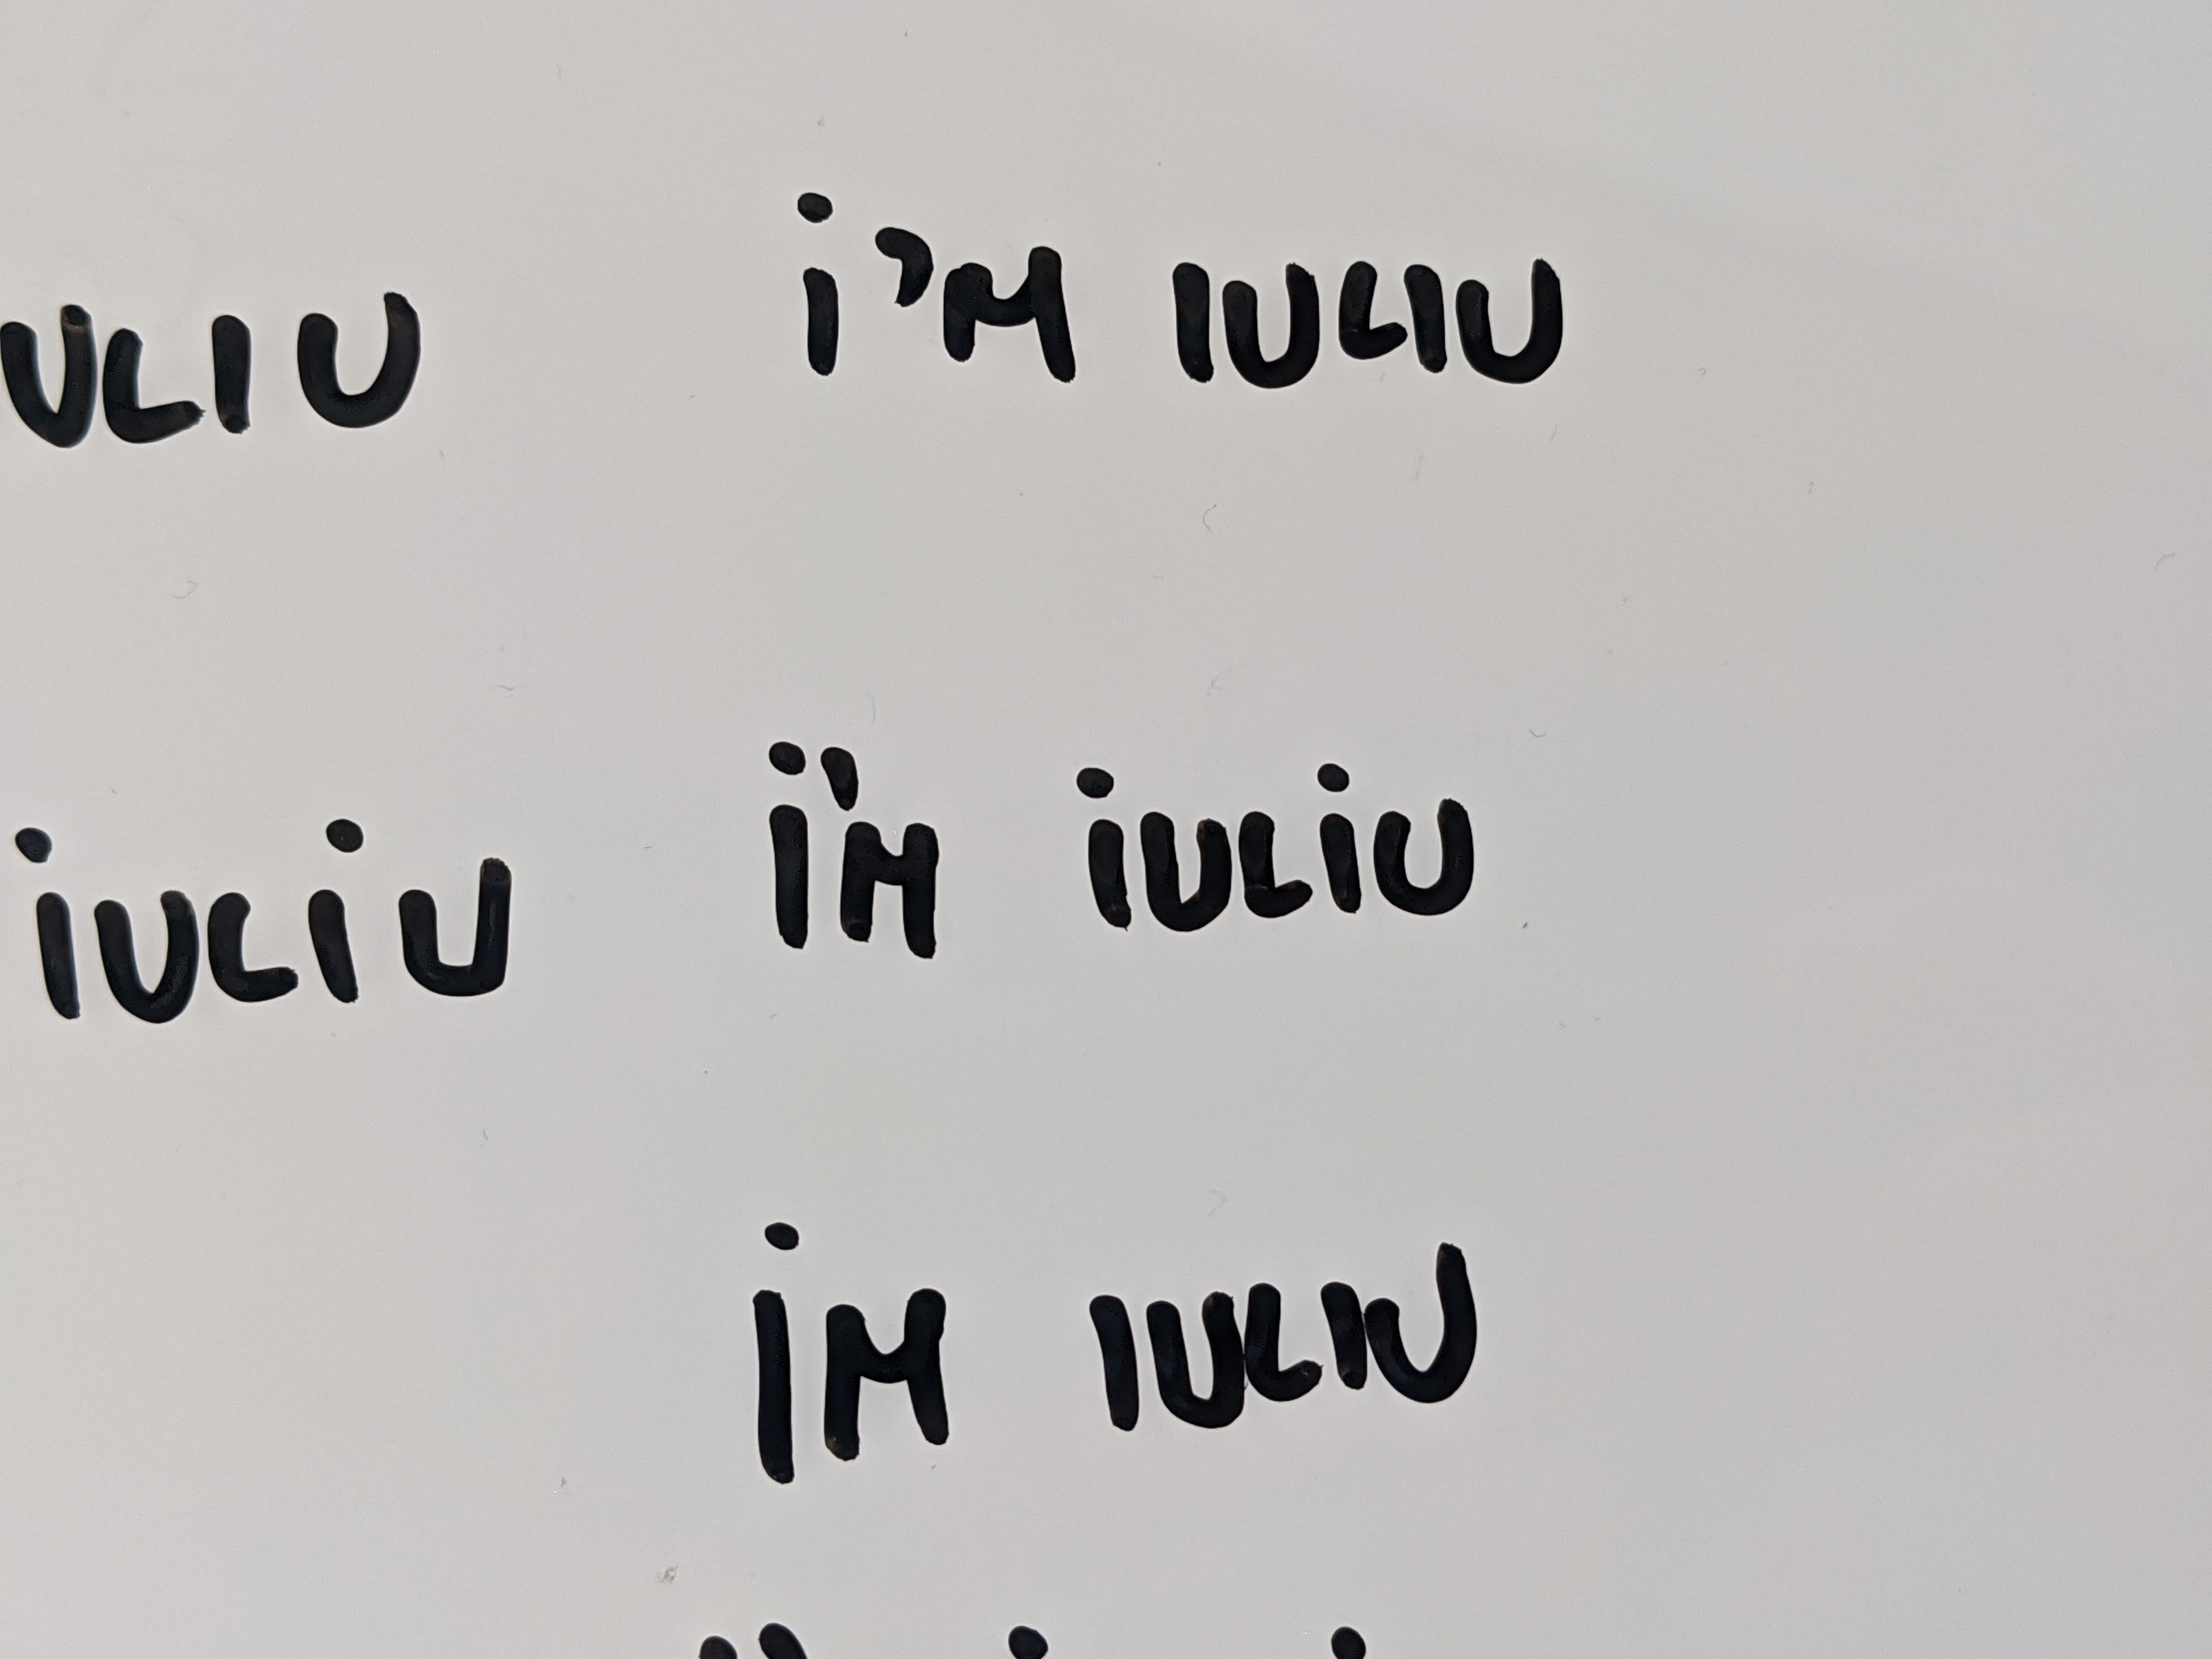 ULIU i'M IULIU
iULiU i'M iULiU
iM IULIU